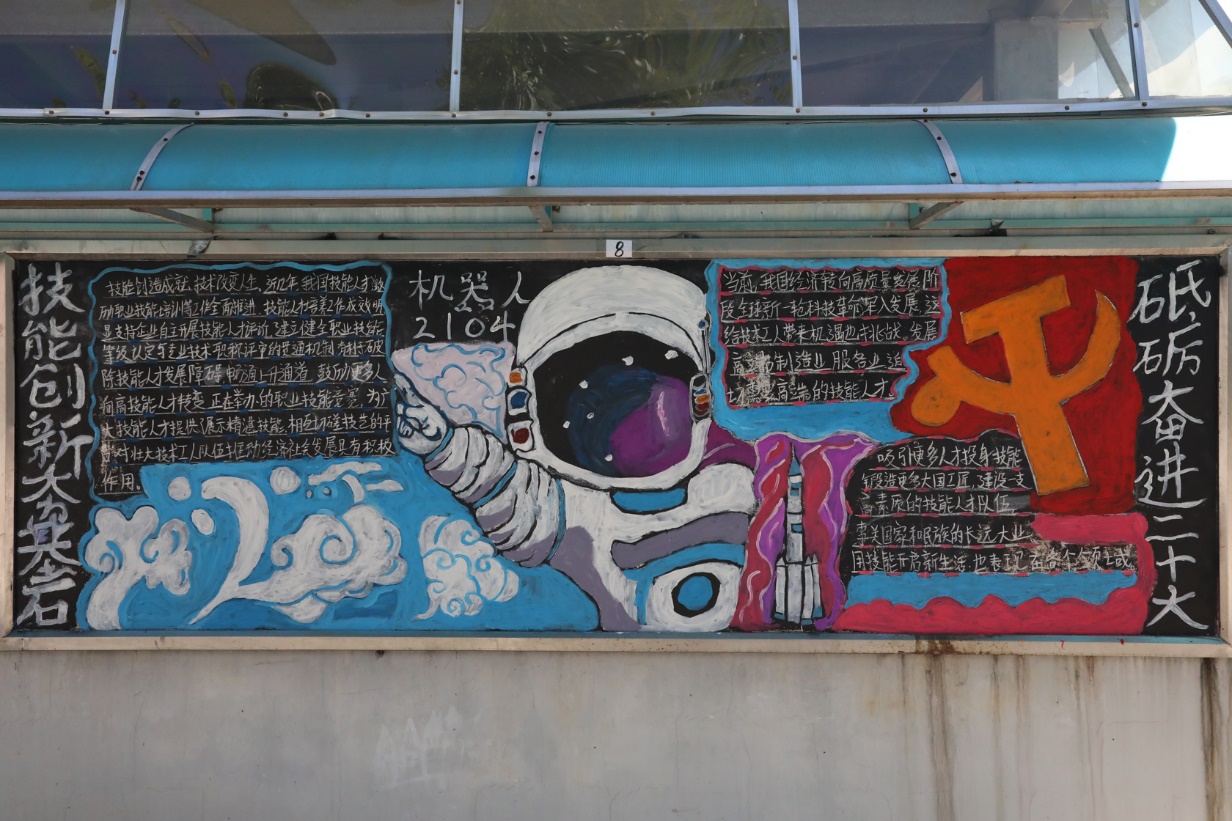 8
技能创新夯基石
技能创造成就,技术改变人生,近几年,我国技能人才激
励职业技能培训等工作全面推进,技能人才培养工作成效明
显支持企业自主开展技能人才评价,建立健全职业技能
等级认定与专业技术职称评审的贯通机制,有待破
除技能人才发展障碍,畅通上升通道,鼓励更多人
向高技能人才转变,正在举办的职业技能竞赛,为广
大技能人才提供
对壮大技术工人队伍,推动经济社会发展具有积极
作用.
机器人
2104
当前,我国经济转向高质量发展阶
段,全球新一轮科技革命深入发展,这
给技术工人带来机遇也带来挑战,发展
高端制造业服务业
高端的技能人才
吸引更多人才投身技能
锻造更多大国工匠,建设一支
高素质的技能人才队伍
事关国家和民族的长远大业
用技能开启新生活,也表现在各个领域
砥砺奋进二十大